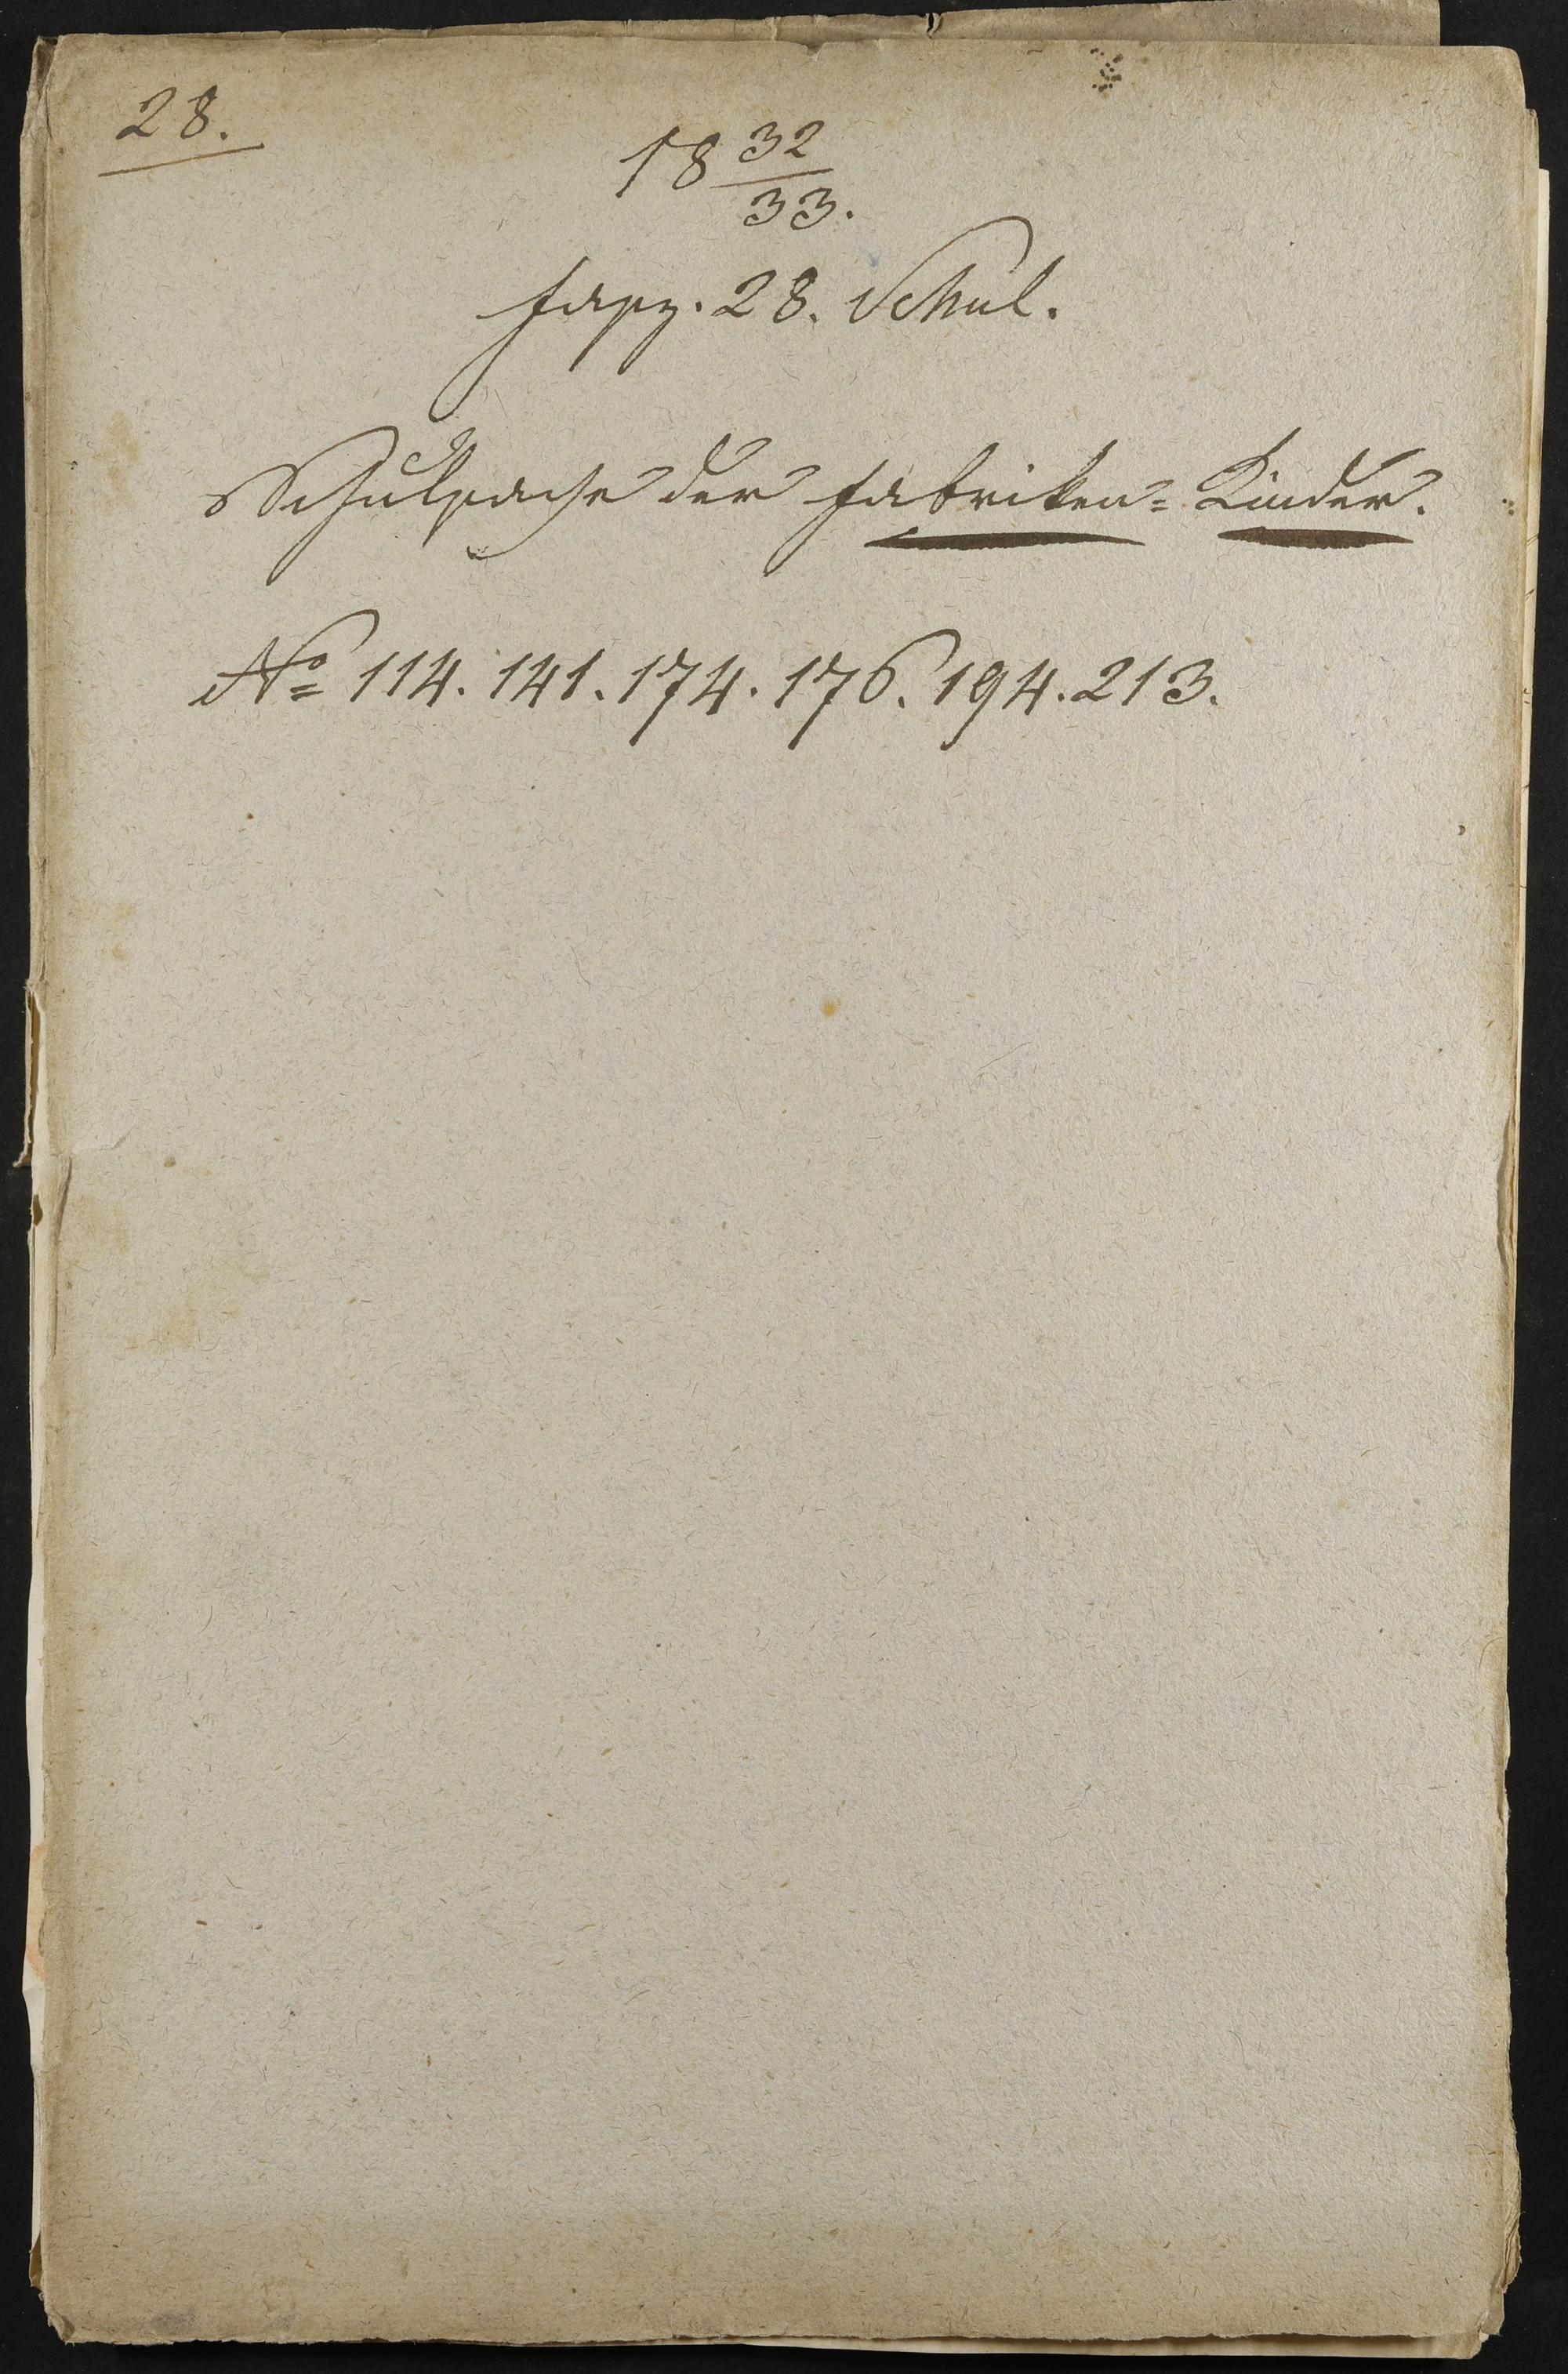 28.
18 32/33.
Fasz. 28. Schul.
Schulsache der Fabriken-Kinder.
No 114. 141. 174. 176. 194. 213.